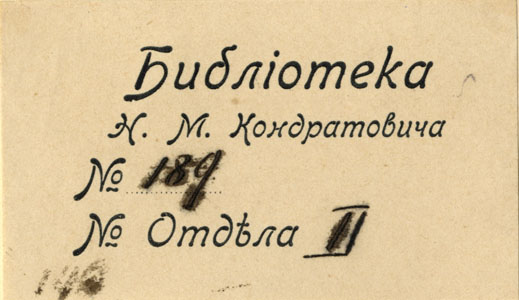 Библіотека
Н. М. Кондратовича
№ 189
№ Отдѣла II
146